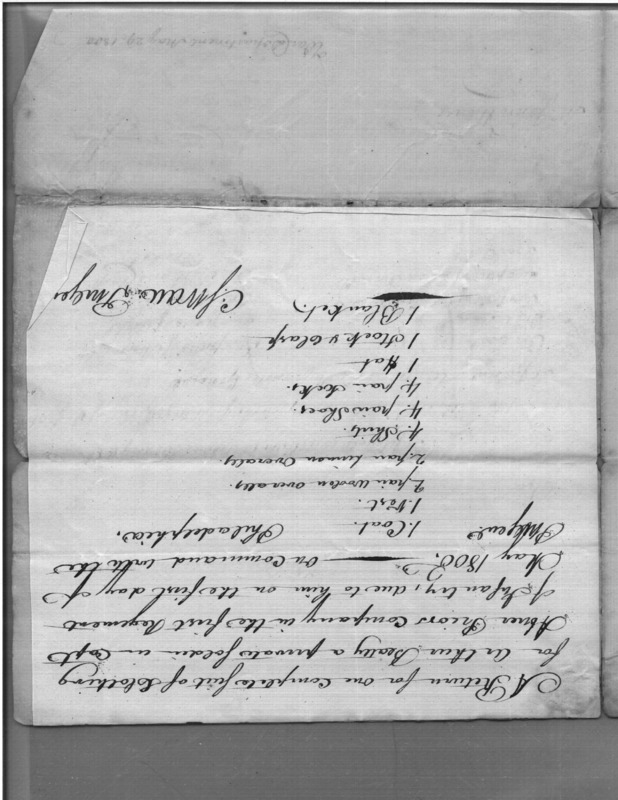 A Return for one Complete suit of Clothing
for Arthur Beatty a private soldier in Capt
Abner Priors Company in the first Regement
of Infantry, due to him on the first day of
May 1800. on Command with the
Philadelphia.
1. Coat.
1. Vest.
2. pair woolen overalls.
2. pair Linnen Overalls.
4. Shirts.
4. pair Shoes.
4. pair Socks.
1 Hat
1 Stock & Clasp
1. Blanket.
War Department May 29. 1800